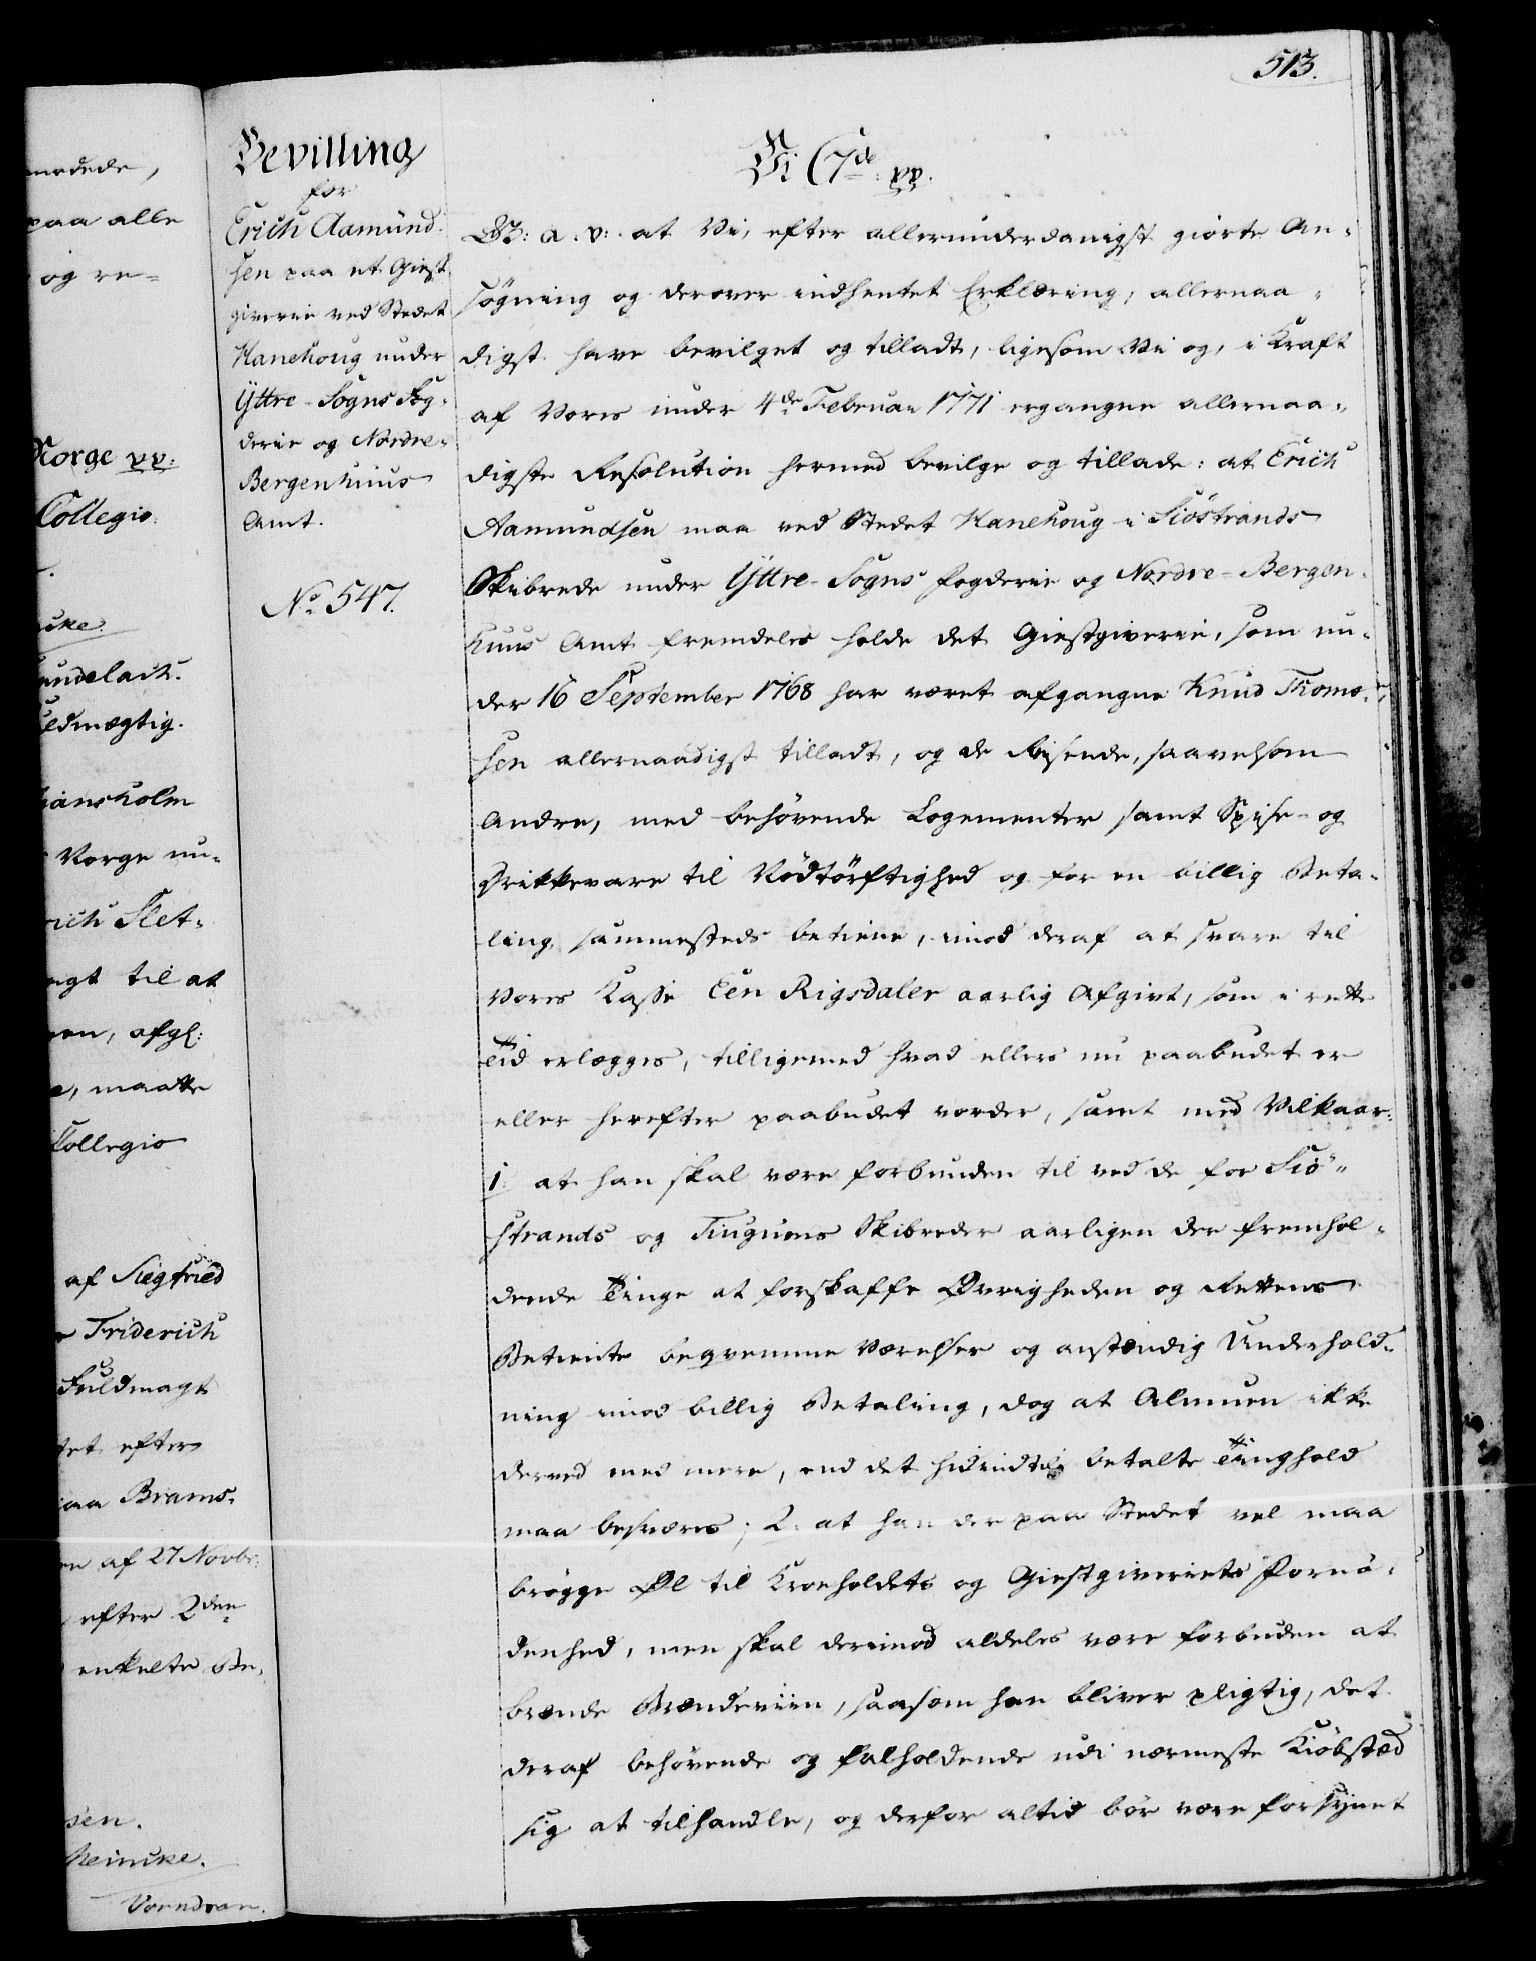 513.
modede,
paa alle
og re-
Norge pp:
Collegio.
ndelach.
uldmægtig.
Vorge un-
rich Slet-
agt til at
en, afgl:
e, maatte
Collegio
af Siegfried
Friderich
Fuldmagt
tet efter
paa Brams-
en af 27 Novbr:
efter 2den
enkelte Be-
sen.
Vorndran.
Bevilling
for
Erich Aamund-
sen paa et Giest-
giverie ved Stedet
Hanehoug under
Yttre-Sogns Fog-
derie og Nordre-
Bergenhuus
Amt.
No 547.
Vi C 7de pp.
G: a: v: at Vi, efter allerunderdanigst giorte An-
søgning og derover indhentet Erklæring, allernaa-
digst have bevilget og tilladt, ligesom Vi og, i Kraft
af Vores under 4de Februar 1771 ergangne allernaa-
digste Resolution hermed bevilge og tillade: at Erich
Aamundsen maa ved Stedet Hanehoug i Siøstrands
Skibrede under Yttre-Sogns Fogderie og Nordre-Bergen-
huus Amt fremdeles holde det Giestgiverie, som un-
der 16 September 1768 har været afgangne Knud Thoms-
sen allernaadigst tilladt, og de Reisende, saavelsom
andre, med behøvende Logementer samt Spise- og
Drikkevare til Nødtørftighed og for en billig Beta-
ling sammesteds betiene, imod deraf at svare til
Vores Kasse Een Rigsdaler aarlig Afgivt, som i rette
Tid erlægges, tilligemed hvad ellers nu paabudet er
eller herefter paabudet vorder, samt med Vilkaar:
1. at han skal være forbunden til ved de for Siø-
strands og Tiugums Skibreder aarligen der fremhol-
dende Tinge at forskaffe Øvrigheden og Rettens
Betiente beqvemme Værelser og anstændig Underhold-
ning imod billig Betaling, dog at Almuen ikke
derved med mere, end det hidindtil betalte Tinghold
maa besværes; 2. at han der paa Stedet vel maa
brøgge Øl til Kroeholdets og Giestgiveriets Fornø-
denhed, men skal derimod aldeles være forbuden at
brænde Brændeviin, saasom han bliver pligtig, det
deraf behøvende og falholdende udi nærmeste Kiøbstæd
sig at tilhandle, og derfor altid bør være forsynet